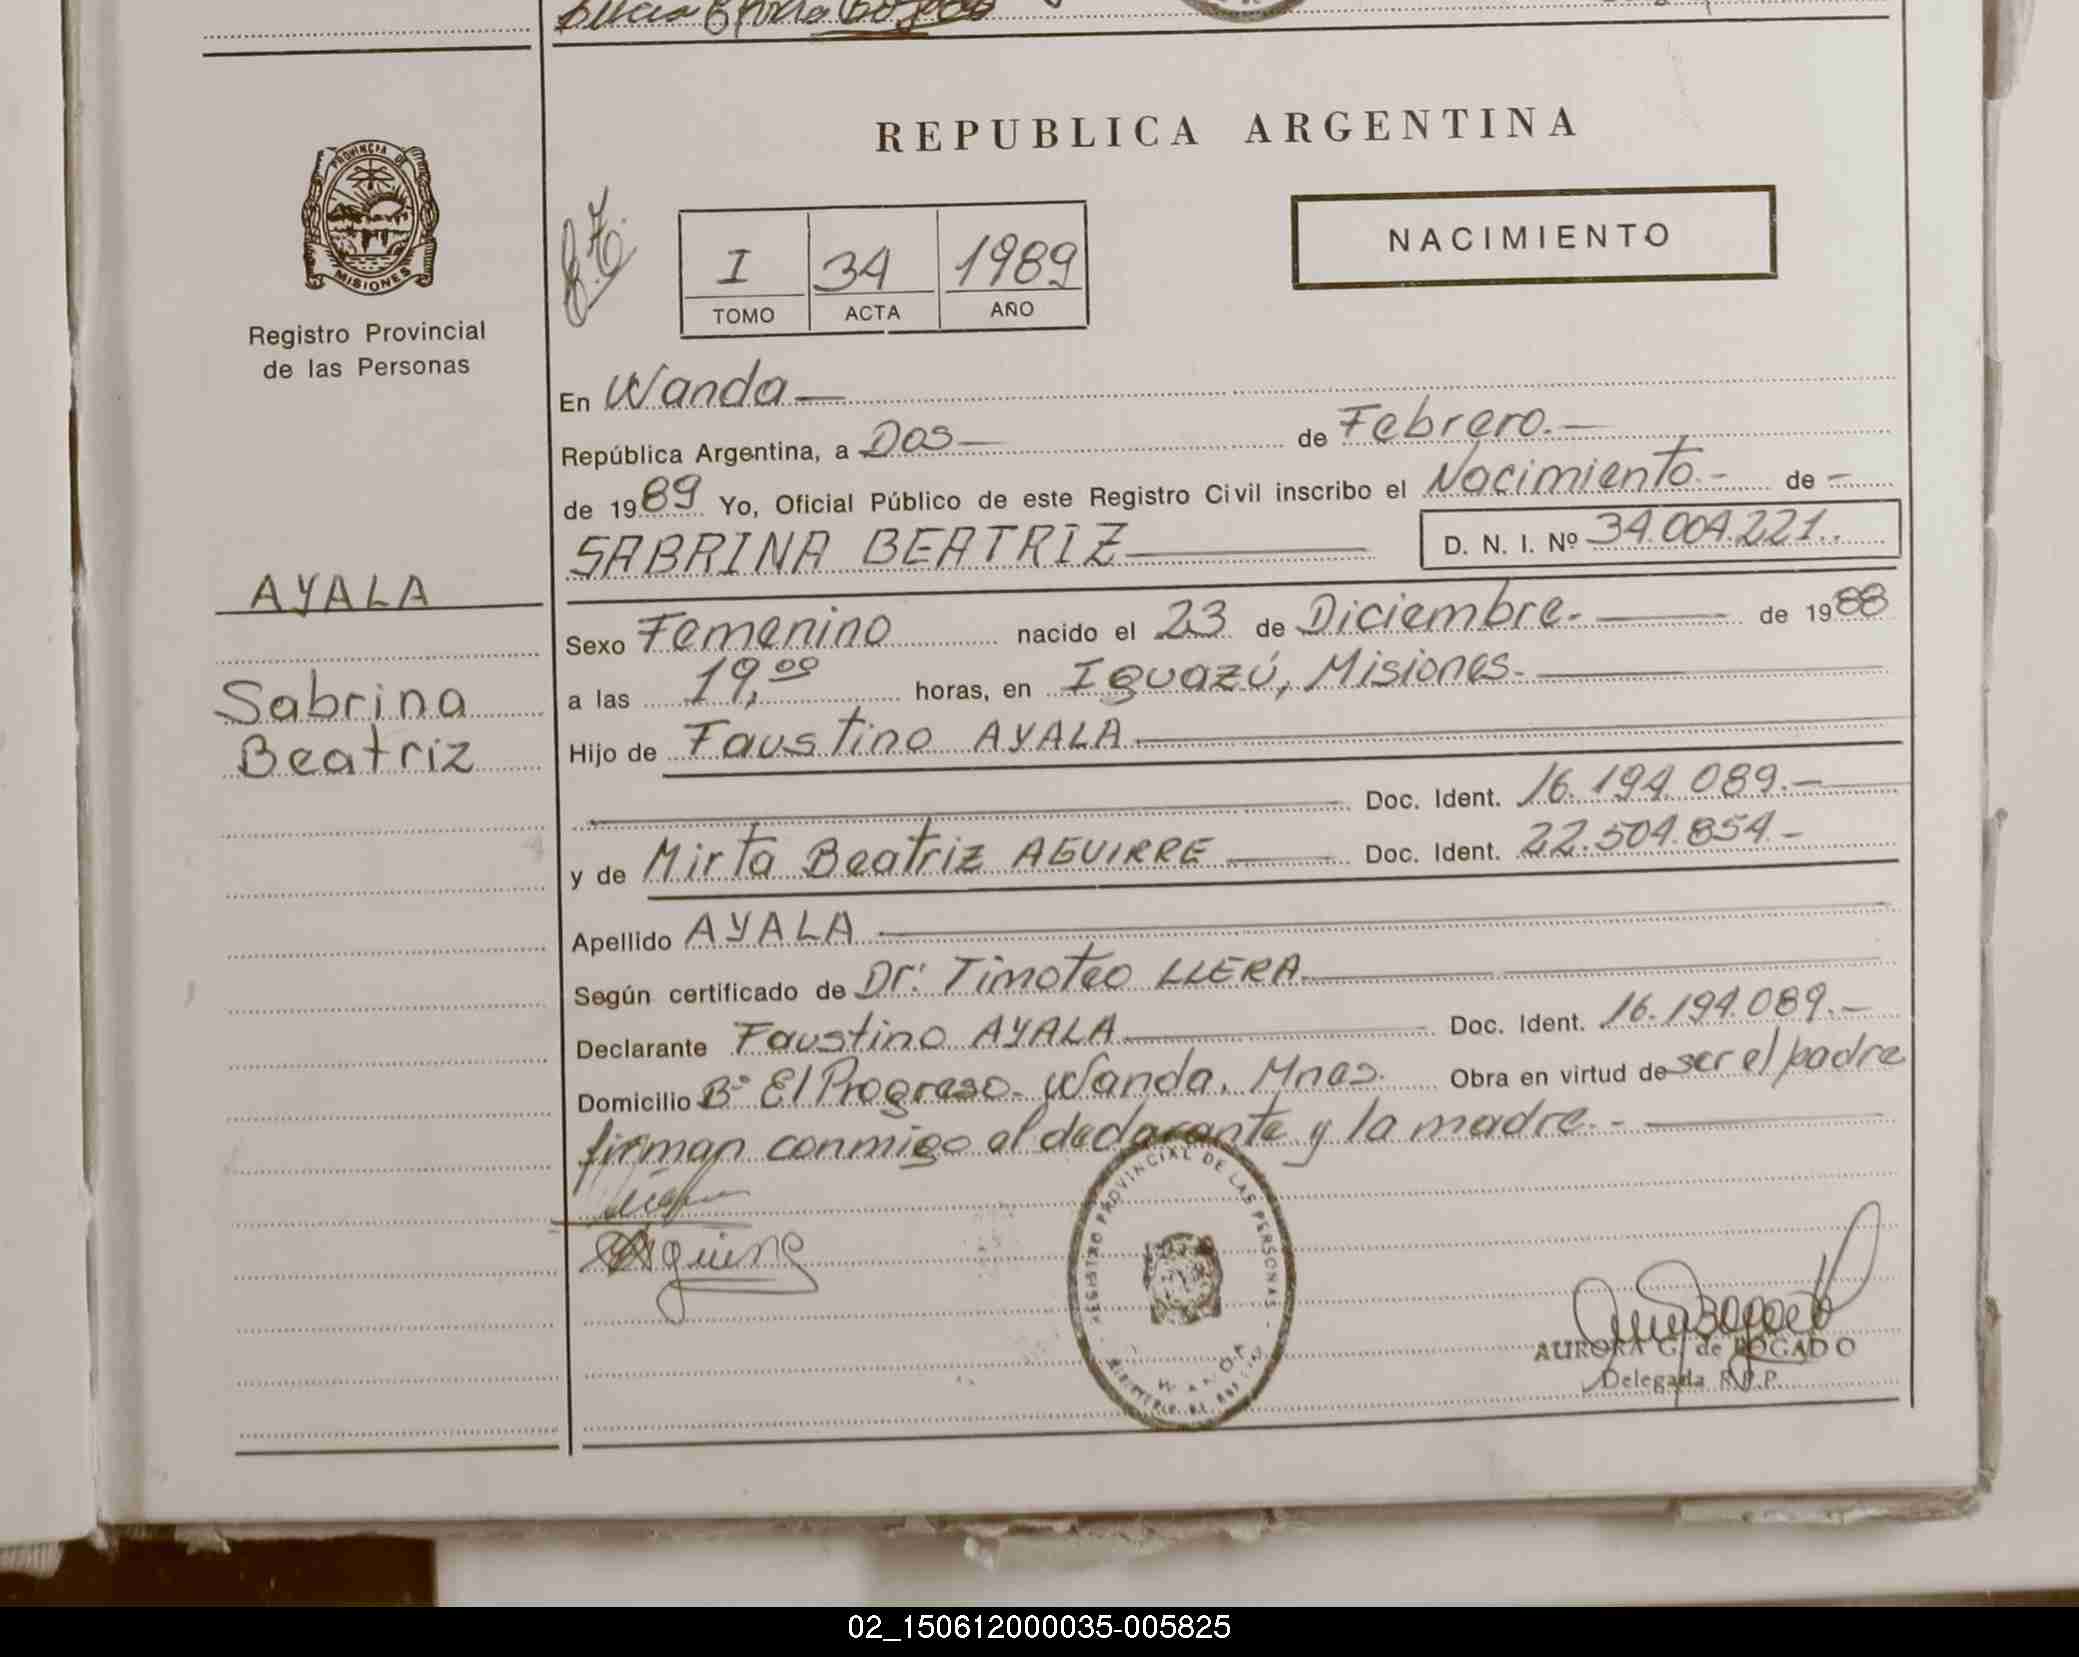 REPUBLICA ARGENTINA
PROVINCIA DE
MISIONES
Registro Provincial
de las Personas
I 34 1989
TOMO ACTA AÑO
NACIMIENTO
En Wanda
República Argentina, a Dos de Febrero.
de 1989 Yo, Oficial Público de este Registro Civil inscribo el Nacimiento.- de -
SABRINA BEATRIZ D. N. I. Nº 34.004.221.
AYALA
Sabrina
Beatriz
Sexo Femenino nacido el 23 de Diciembre. de 1988
a las 19,00 horas, en Iguazú, Misiones.
Hijo de Faustino AYALA
Doc. Ident. 16.194.089.-
y de Mirta Beatriz AGUIRRE Doc. Ident. 22.504.854.-
Apellido AYALA
Según certificado de Dr: Timoteo LLERA.
Declarante Faustino AYALA Doc. Ident. 16.194.089.-
Domicilio Bº El Progreso. Wanda. Mnes. Obra en virtud de ser el padre
firman conmigo el declarante y la madre.-
REGISTRO PROVINCIAL DE LAS PERSONAS
WANDA
AURORA G. de BOGADO
Delegada R.P.P.
02_150612000035-005825